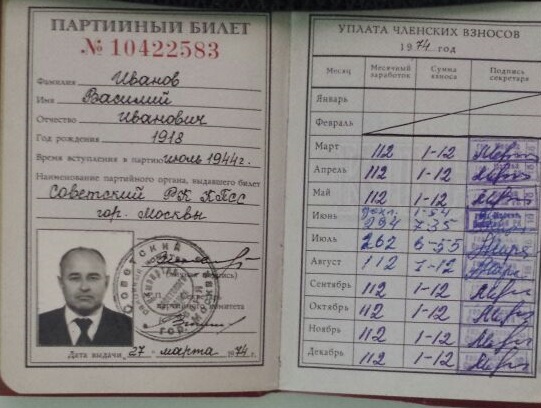 ПАРТИЙНЫЙ БИЛЕТ
№ 10422583
Фамилия Иванов
Имя Василий
Отчество Иванович
Год рождения 1918
Время вступления в партию июль 1944 г.
Наименование партийного органа, выдавшего билет
Советский РК КПСС
гор. Москвы
Дата выдачи 27 марта 1974 г.
УПЛАТА ЧЛЕНСКИХ ВЗНОСОВ
1974 ГОД
Месяц Месячный заработок Сумма взноса Подпись секретаря
Январь
Февраль
Март 112 1-12
Апрель 112 1-12
Май 112 1-12
Июнь 294 7-35
Июль 262 6-55
Август 112 1-12
Сентябрь 112 1-12
Октябрь 112 1-12
Ноябрь 112 1-12
Декабрь 112 1-12